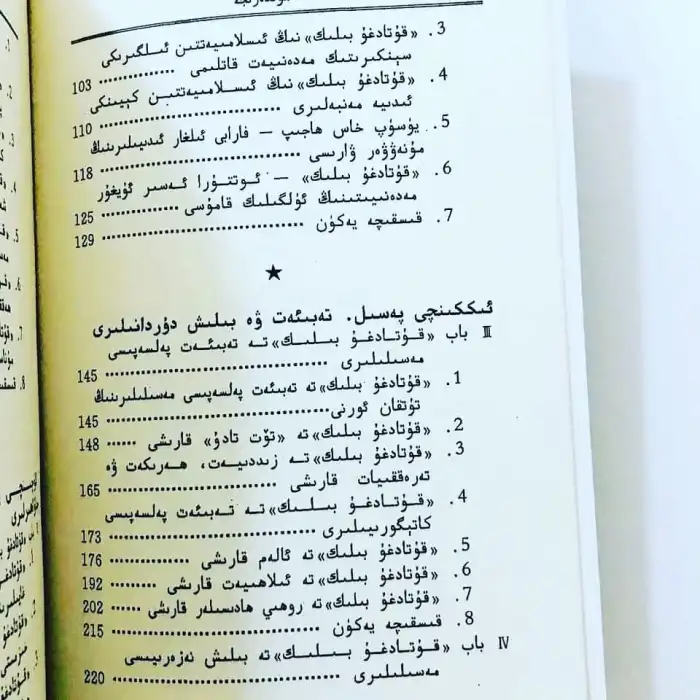 3. «قۇتادغۇ بىلىك» نىڭ ئىسلامىيەتتىن ئىلگىرىكى
سىنكىرىتىك مەدەنىيەت قاتلىمى ............... 103
4. «قۇتادغۇ بىلىك» نىڭ ئىسلامىيەتتىن كېيىنكى
ئىدىيە مەنبەلىرى ............... 110
5. يۈسۈپ خاس ھاجىپ — فارابى ئىلغار ئىدىيىلىرىنىڭ
مۇنەۋۋەر ۋارىسى ............... 118
6. «قۇتادغۇ بىلىك» — ئوتتۇرا ئەسىر ئۇيغۇر
مەدەنىيىتىنىڭ ئۈلگىلىك قامۇسى ............... 125
7. قىسقىچە يەكۈن ............... 129
★
ئىككىنچى پەسىل. تەبىئەت ۋە بىلىش دۇردانىلىرى
III باب «قۇتادغۇ بىلىك» تە تەبىئەت پەلسەپىسى
مەسىلىلىرى ............... 145
1. «قۇتادغۇ بىلىك» تە تەبىئەت پەلسەپىسى مەسىلىلىرىنىڭ
تۇتقان ئورنى ............... 145
2. «قۇتادغۇ بىلىك» تە «تۆت تادۇ» قارىشى ...... 148
3. «قۇتادغۇ بىلىك» تە زىددىيەت، ھەرىكەت ۋە
تەرەققىيات قارىشى ............... 165
4. «قۇتادغۇ بىلىك» تە تەبىئەت پەلسەپىسى
كاتېگورىيىلىرى ............... 173
5. «قۇتادغۇ بىلىك» تە ئالەم قارىشى ............ 176
6. «قۇتادغۇ بىلىك» تە ئىلاھىيەت قارىشى ......... 192
7. «قۇتادغۇ بىلىك» تە روھىي ھادىسىلەر قارىشى ...... 202
8. قىسقىچە يەكۈن ............... 215
IV باب «قۇتادغۇ بىلىك» تە بىلىش نەزەرىيىسى
مەسىلىلىرى ............... 220